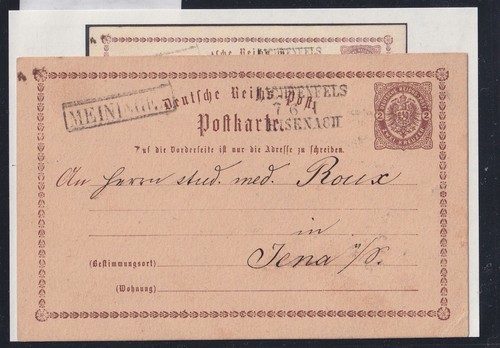 LICHTENFELS
MEININGEN
Deutsche Reichs-Post.
LICHTENFELS
7 6
EISENACH
Postkarte
2 2
Auf die Vorderseite ist nur die Adresse zu schreiben.
An Herrn stud. med. Roux
in
(Bestimmungsort)
Jena a/S.
(Wohnung)